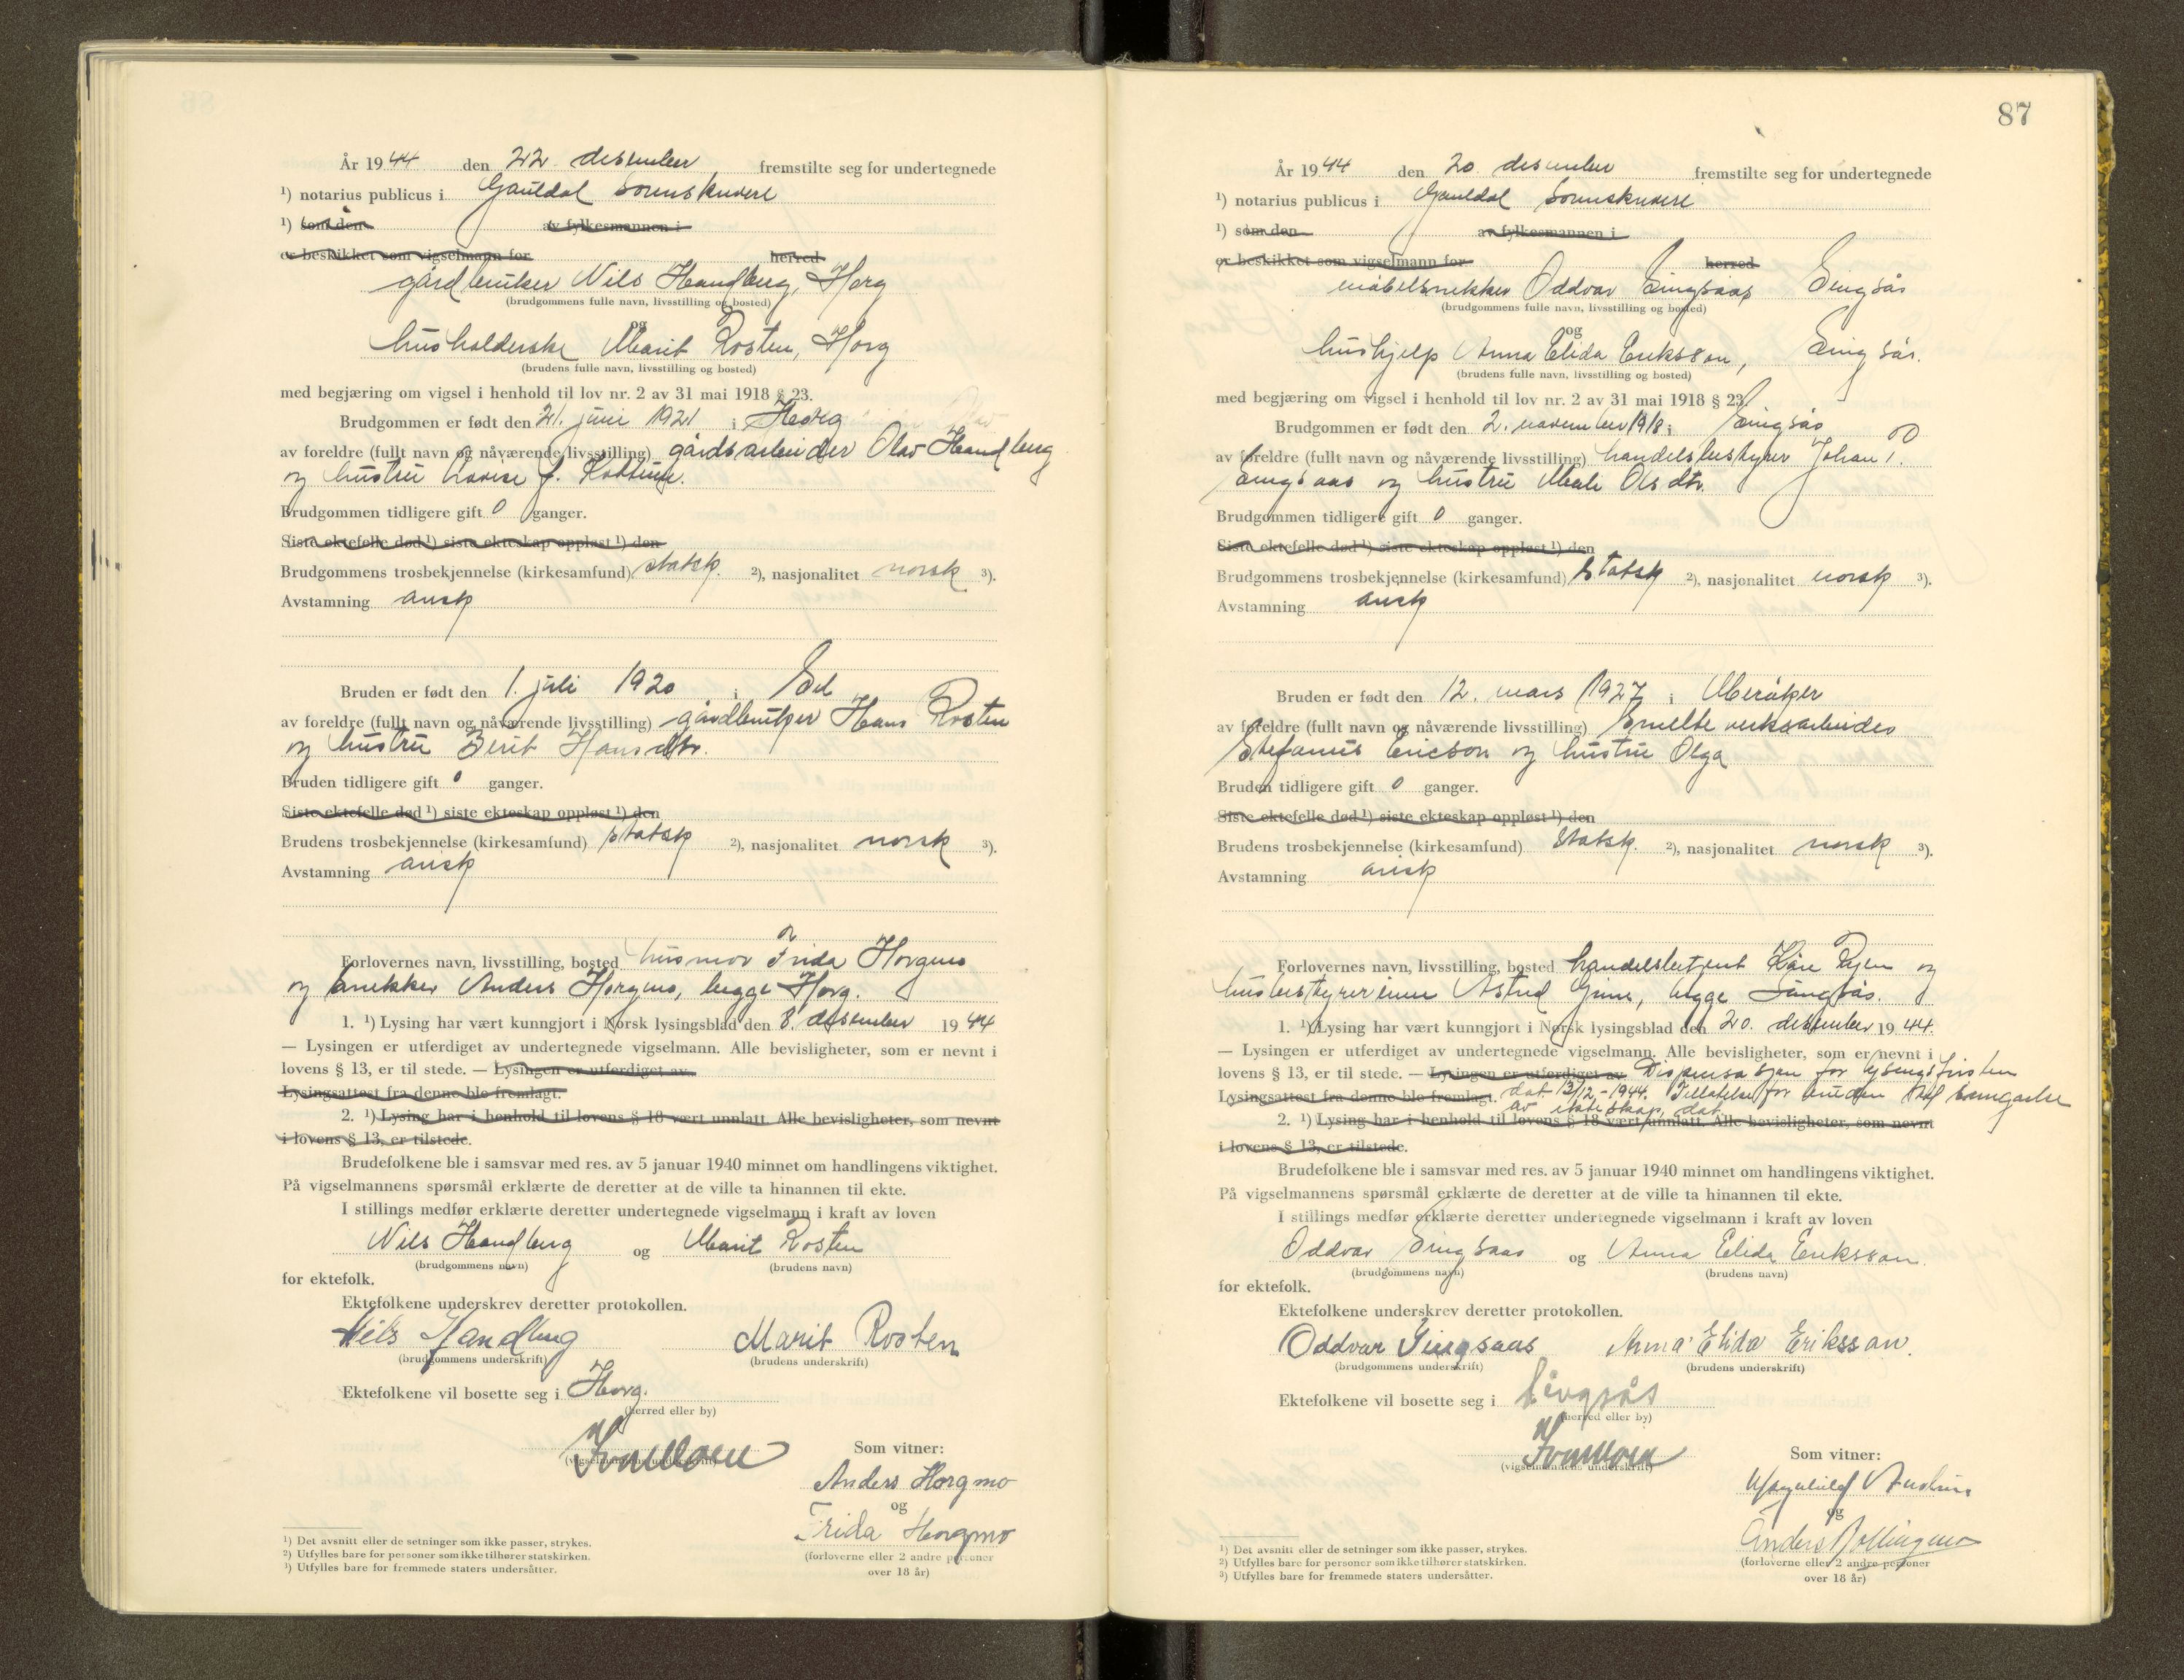 År 1944 den 22. desember fremstilte seg for undertegnede
¹) notarius publicus i Gauldal Sorenskriveri
¹) som den av fylkesmannen i
er beskikket som vigselmann for herred
gårdbruker Nils Handberg, Horg
(brudgommens fulle navn, livsstilling og bosted)
og
husholderske Marit Rosten, Horg
(brudens fulle navn, livsstilling og bosted)
med begjæring om vigsel i henhold til lov nr. 2 av 31 mai 1918 § 23.
Brudgommen er født den 21. juni 1921 i Horg
av foreldre (fullt navn og nåværende livsstilling) gårdsarbeider Olav Handberg
og hustru Lovise f.
Brudgommen tidligere gift 0 ganger.
Siste ektefelle død ¹) siste ekteskap oppløst ¹) den
Brudgommens trosbekjennelse (kirkesamfund) statsk. ²), nasjonalitet norsk ³).
Avstamning arisk
Bruden er født den 1. juli 1920 i Sel
av foreldre (fullt navn og nåværende livsstilling) gårdbruker Hans Rosten
og hustru Berit Hansdtr.
Bruden tidligere gift 0 ganger.
Siste ektefelle død ¹) siste ekteskap oppløst ¹) den
Brudens trosbekjennelse (kirkesamfund) statsk ²), nasjonalitet norsk ³).
Avstamning arisk
Forlovernes navn, livsstilling, bosted husmor Frida Horgmo
og snekker Anders Horgmo, begge Horg.
1. ¹) Lysing har vært kunngjort i Norsk lysingsblad den 8. desember 1944
— Lysingen er utferdiget av undertegnede vigselmann. Alle bevisligheter, som er nevnt i
lovens § 13, er til stede. — Lysingen er utferdiget av
Lysingsattest fra denne ble fremlagt.
2. ¹) Lysing har i henhold til lovens § 18 vært unnlatt. Alle bevisligheter, som nevnt
i lovens § 13, er tilstede.
Brudefolkene ble i samsvar med res. av 5 januar 1940 minnet om handlingens viktighet.
På vigselmannens spørsmål erklærte de deretter at de ville ta hinannen til ekte.
I stillings medfør erklærte deretter undertegnede vigselmann i kraft av loven
Nils Handberg og Marit Rosten
(brudgommens navn) (brudens navn)
for ektefolk.
Ektefolkene underskrev deretter protokollen.
Nils Handberg Marit Rosten
(brudgommens underskrift) (brudens underskrift)
Ektefolkene vil bosette seg i Horg.
(herred eller by)
(vigselmannens underskrift)
Som vitner:
Anders Horgmo
og
Frida Horgmo
(forloverne eller 2 andre personer
over 18 år)
¹) Det avsnitt eller de setninger som ikke passer, strykes.
²) Utfylles bare for personer som ikke tilhører statskirken.
³) Utfylles bare for fremmede staters undersåtter.
87
År 1944 den 20. desember fremstilte seg for undertegnede
¹) notarius publicus i Gauldal Sorenskriveri
¹) som den av fylkesmannen i
er beskikket som vigselmann for herred
møbelsnekker Oddvar Singsaas Singsås
(brudgommens fulle navn, livsstilling og bosted)
og
hushjelp Anna Elida Eriksson, Singsås.
(brudens fulle navn, livsstilling og bosted)
med begjæring om vigsel i henhold til lov nr. 2 av 31 mai 1918 § 23.
Brudgommen er født den 2. november 1918 i Singsås
av foreldre (fullt navn og nåværende livsstilling) handelsbestyrer Johan P.
Singsaas og hustru Mali Olsdtr.
Brudgommen tidligere gift 0 ganger.
Siste ektefelle død ¹) siste ekteskap oppløst ¹) den
Brudgommens trosbekjennelse (kirkesamfund) statsk ²), nasjonalitet norsk ³).
Avstamning arisk
Bruden er født den 12. mars 1927 i Meråker
av foreldre (fullt navn og nåværende livsstilling) smelteverksarbeider
Stefanus Ericson og hustru Olga
Bruden tidligere gift 0 ganger.
Siste ektefelle død ¹) siste ekteskap oppløst ¹) den
Brudens trosbekjennelse (kirkesamfund) statsk. ²), nasjonalitet norsk ³).
Avstamning arisk
Forlovernes navn, livsstilling, bosted handelsbetjent Kåre Rjen og
husbestyrerinne Astrid, begge Singsås.
1. ¹) Lysing har vært kunngjort i Norsk lysingsblad den 20. desember 1944.
— Lysingen er utferdiget av undertegnede vigselmann. Alle bevisligheter, som er nevnt i
lovens § 13, er til stede. — Lysingen er utferdiget av Dispensasjon for lysingsfristen
Lysingsattest fra denne ble fremlagt. dat. 13/12-1944. Tillatelse for bruden til inngåelse
av ekteskap, dat
2. ¹) Lysing har i henhold til lovens § 18 vært unnlatt. Alle bevisligheter, som nevnt
i lovens § 13, er tilstede.
Brudefolkene ble i samsvar med res. av 5 januar 1940 minnet om handlingens viktighet.
På vigselmannens spørsmål erklærte de deretter at de ville ta hinannen til ekte.
I stillings medfør erklærte deretter undertegnede vigselmann i kraft av loven
Oddvar Singsaas og Anna Elida Eriksson.
(brudgommens navn) (brudens navn)
for ektefolk.
Ektefolkene underskrev deretter protokollen.
Oddvar Singsaas Anna Elida Eriksson.
(brudgommens underskrift) (brudens underskrift)
Ektefolkene vil bosette seg i Singsås
(herred eller by)
(vigselmannens underskrift)
Som vitner:
og
Anders Bollingmo
(forloverne eller 2 andre personer
over 18 år)
¹) Det avsnitt eller de setninger som ikke passer, strykes.
²) Utfylles bare for personer som ikke tilhører statskirken.
³) Utfylles bare for fremmede staters undersåtter.